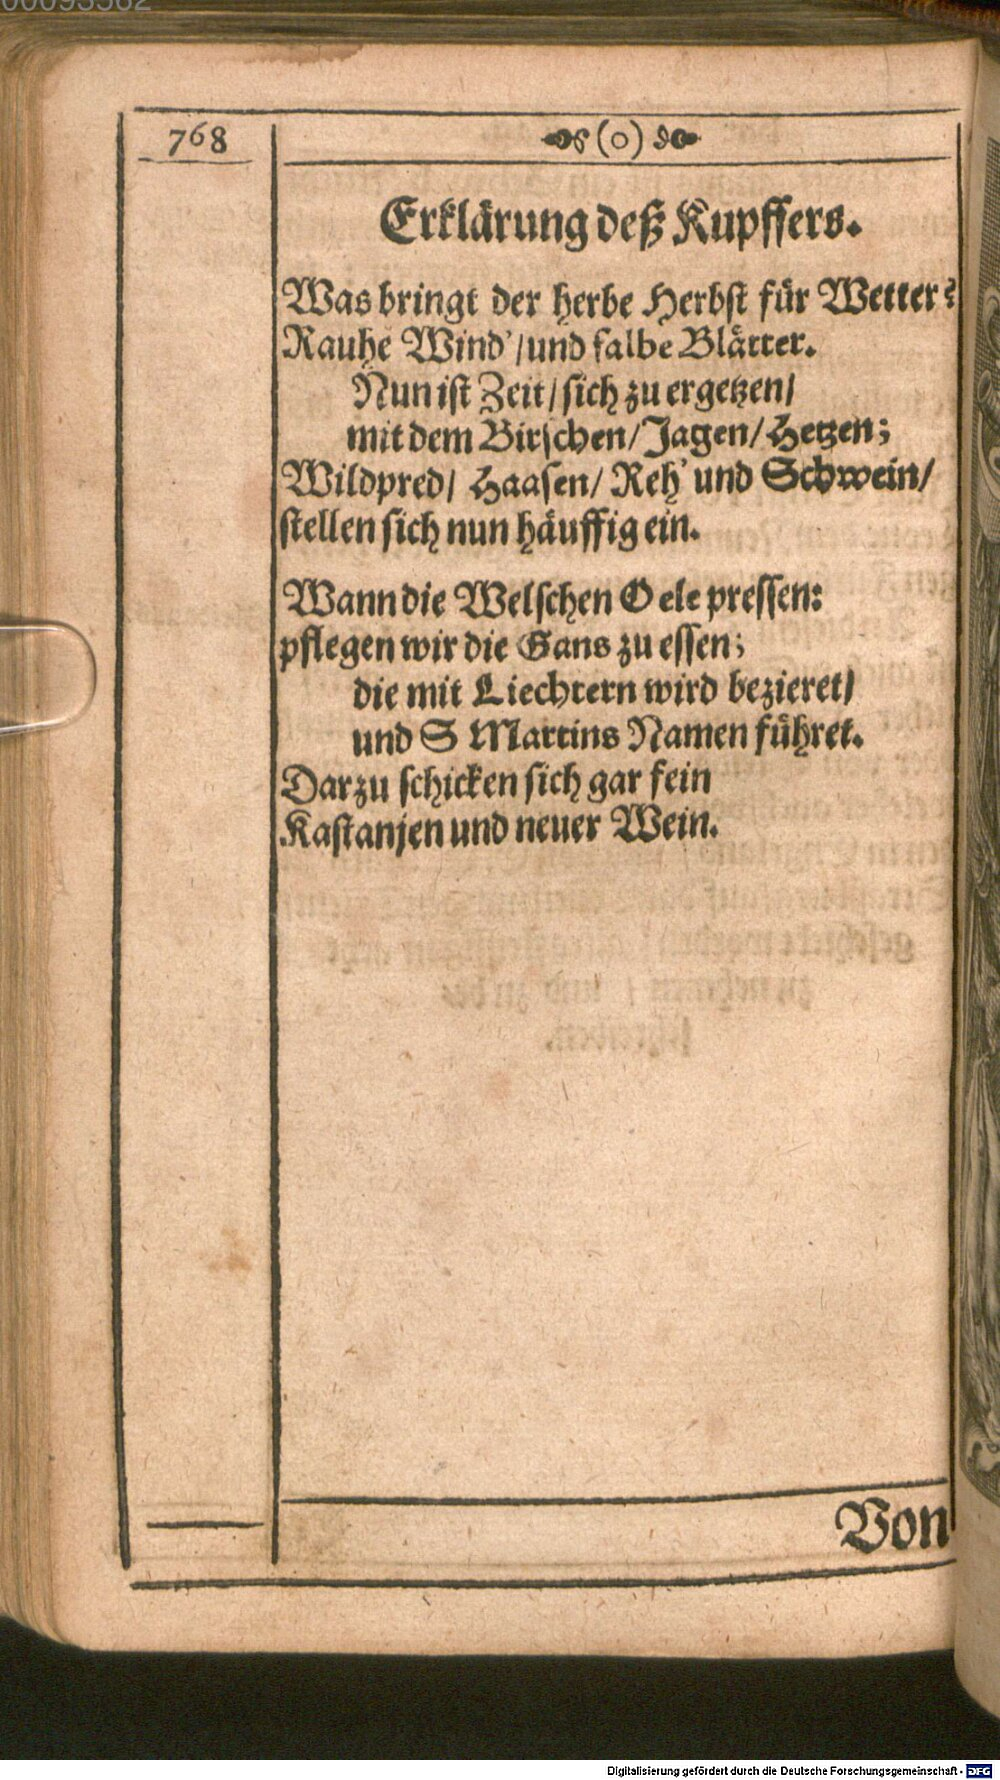 768
(o)
Erklärung deß Kupffers.
Was bringt der herbe Herbst für Wetter?
Rauhe Wind'/und falbe Blätter.
Nun ist Zeit/ sich zu ergetzen/
mit dem Birschen/Jagen/Hetzen;
Wildpred/ Haasen/ Reh' und Schwein/
stellen sich nun häuffig ein.
Wann die Welschen Oele pressen:
pflegen wir die Gans zu essen;
die mit Liechtern wird bezieret/
und S Martins Namen führet.
Darzu schicken sich gar fein
Kastanjen und neuer Wein.
Von
Digitalisierung gefördert durch die Deutsche Forschungsgemeinschaft - DFG